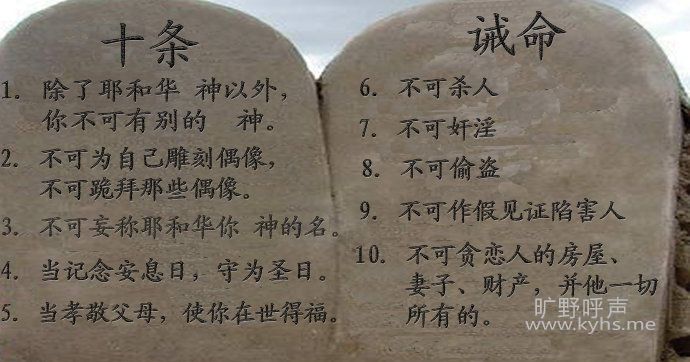 十条
1. 除了耶和华 神以外，
你不可有别的 神。
2. 不可为自己雕刻偶像，
不可跪拜那些偶像。
3. 不可妄称耶和华你 神的名。
4. 当记念安息日，守为圣日。
5. 当孝敬父母，使你在世得福。
诫命
6. 不可杀人
7. 不可奸淫
8. 不可偷盗
9. 不可作假见证陷害人
10. 不可贪恋人的房屋、
妻子、财产，并他一切
所有的。
旷野呼声
www.kyhs.me